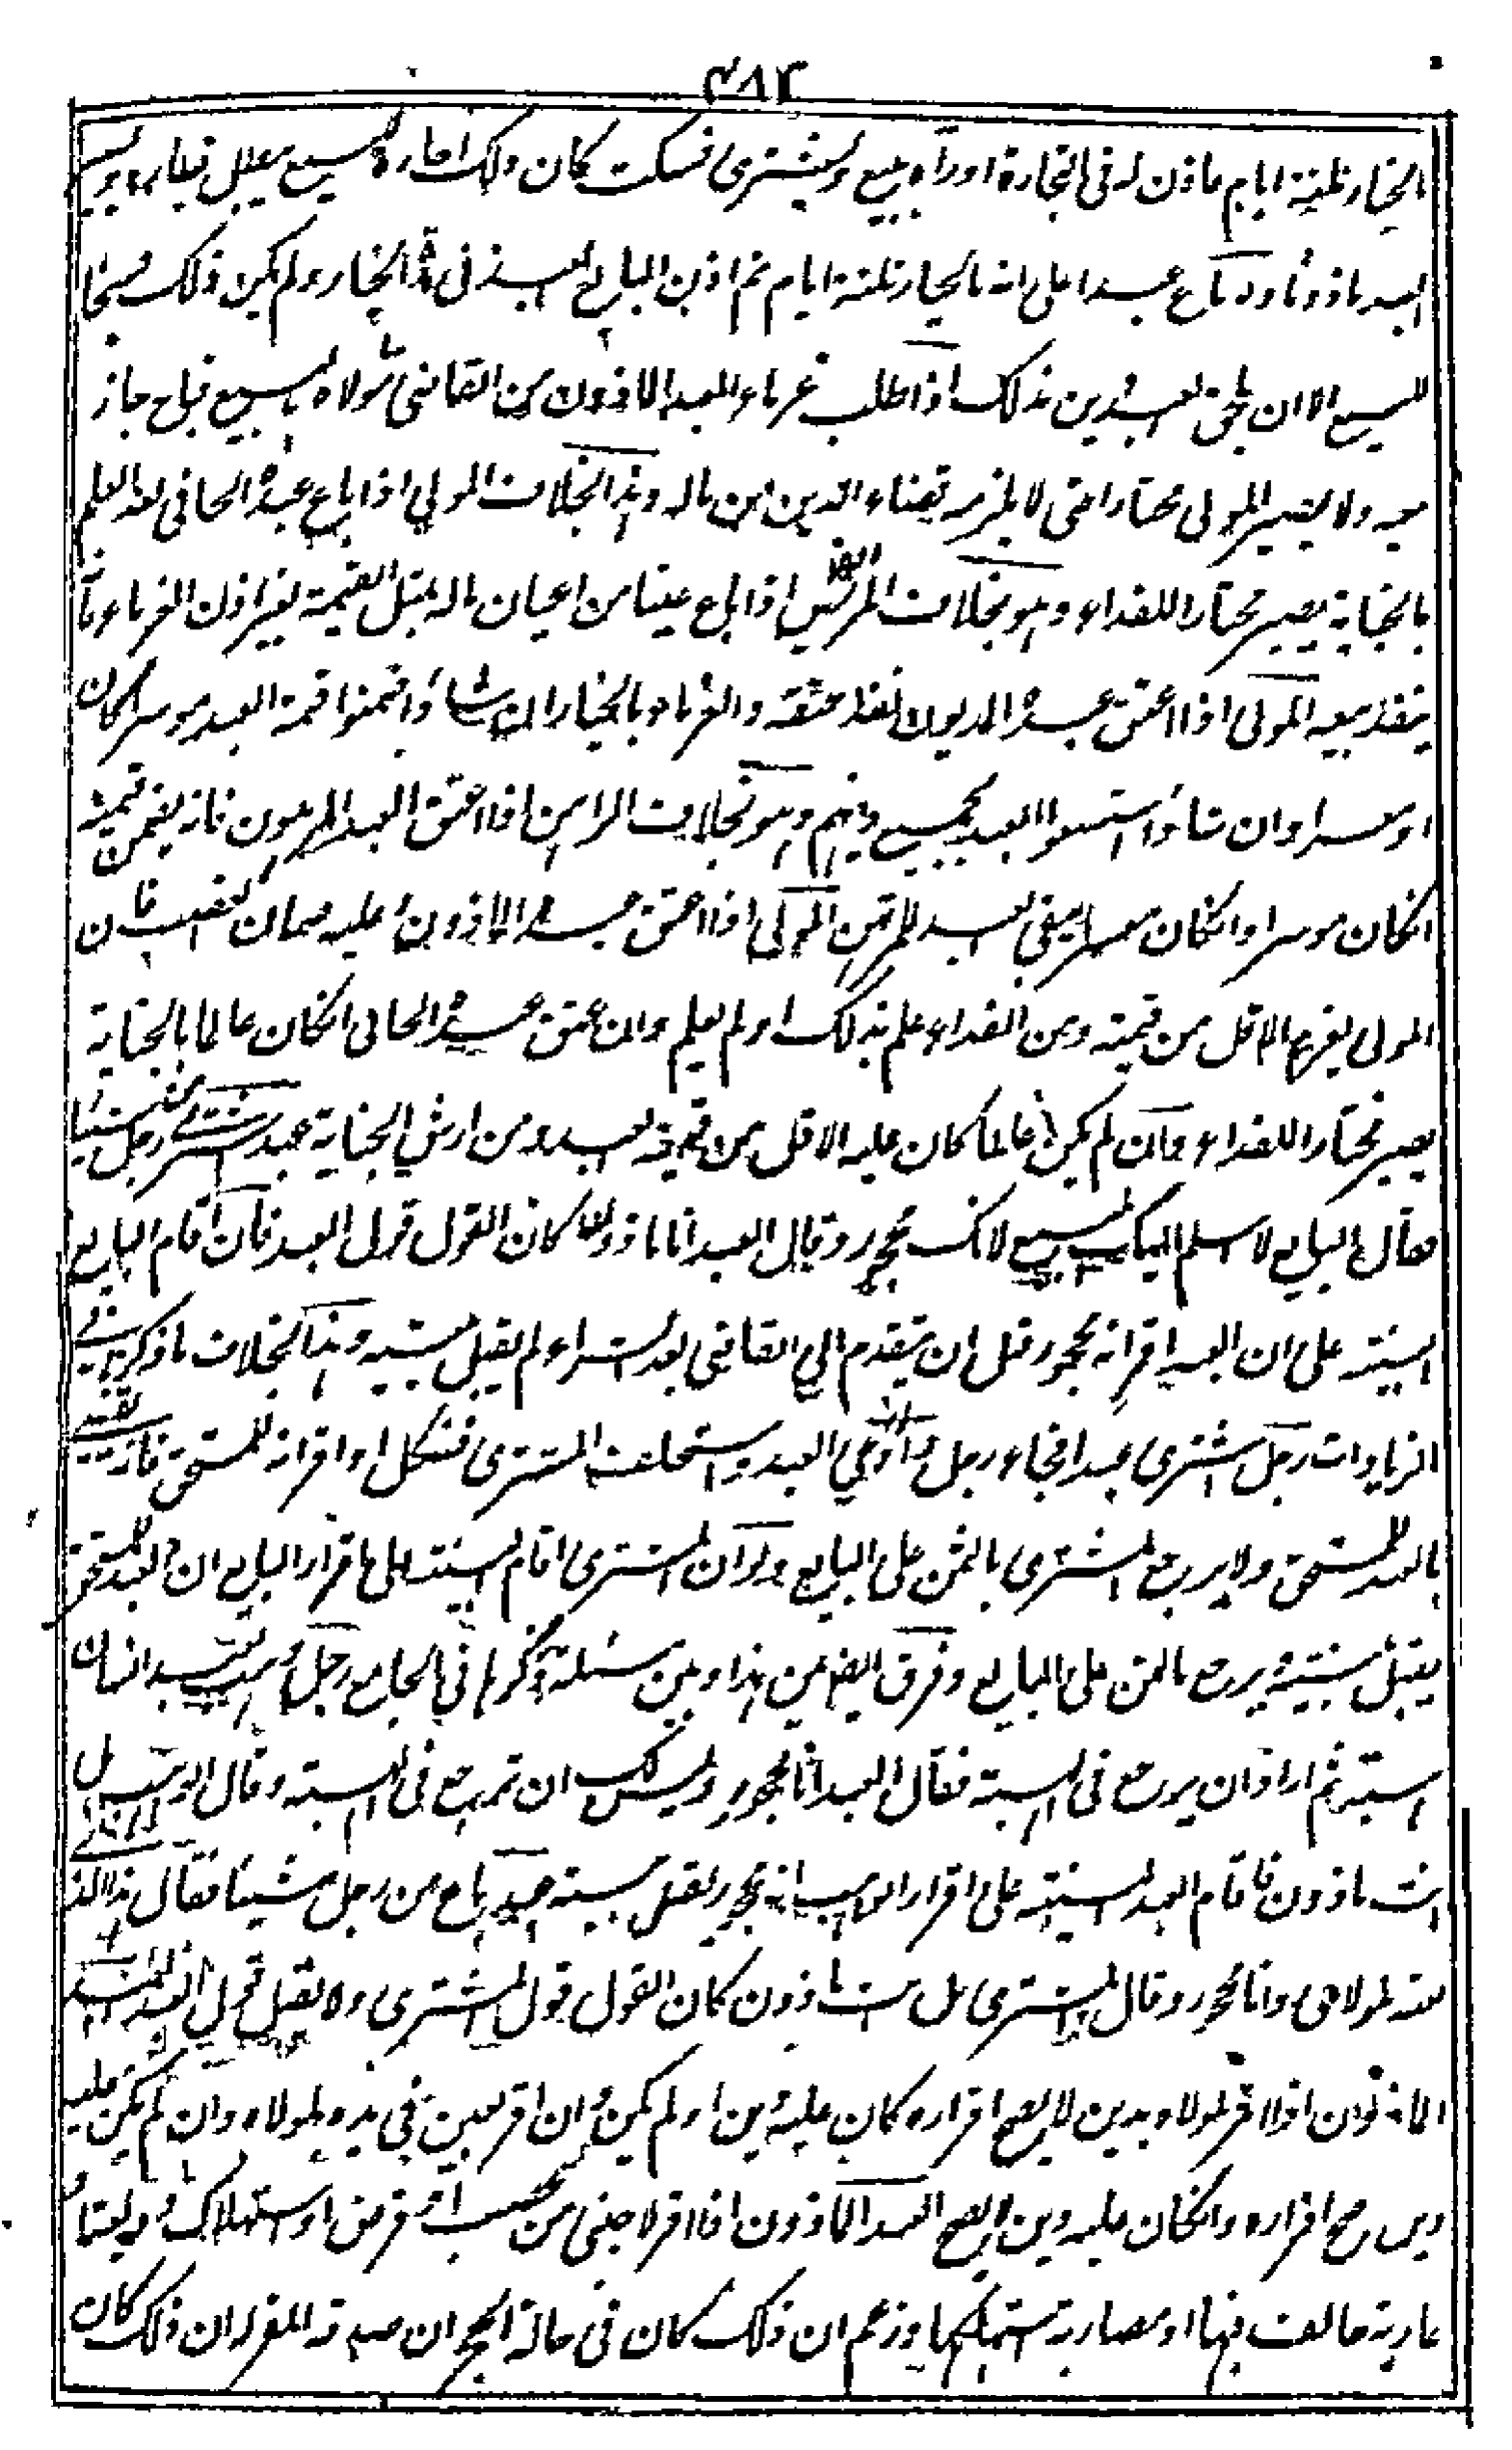 ٤٨٢
الخيار ثلثة ايام فاذن له في التجارة او رآه يبيع ويشتري فسكت كان ذلك اجازة للبيع ويبطل خياره ويصير
العبد ماذونا ولو باع عبدا على انه بالخيار ثلثة ايام ثم اذن البايع للعبد في مدة الخيار ولم يكن ذلك فسخا
للبيع الا ان يلحق العبد دين بذلك اذا طلب غرماء العبد الماذون من القاضي مولاه بالبيع فباع جاز
بيعه ولا يصير المولى مختارا حتى لا يلزمه قضاء الدين من ماله وهذا بخلاف المولى اذا باع عبده الجاني بعد العلم
بالجناية يصير مختارا للفداء وهو بخلاف المريض اذا باع عينا من اعيان ماله بمثل القيمة بغير اذن الغرماء فانه
ينفذ بيعه المولى اذا اعتق عبده المديون نفذ عتقه والغرماء بالخيار ان شاؤا ضمنوا قيمة العبد موسرا كان
او معسرا وان شاؤا استسعوا العبد بجميع دينهم وهو بخلاف الراهن اذا اعتق العبد المرهون فانه يضمن قيمته
انكان موسرا وانكان معسرا يسعى العبد للمرتهن المولى اذا اعتق عبده الماذون وعليه ضمان الغصب فان
المولى يغرم الاقل من قيمته ومن الفداء علم بذلك او لم يعلم وان عتق عبده الجاني انكان عالما بالجناية
يصير مختارا للفداء وان لم يكن عالما كان عليه الاقل من قيمة العبد ومن ارش الجناية عبد اشترى من رجل شيئا
فقال البايع لا اسلم اليك المبيع لانك محجور وقال العبد انا ماذون كان القول قول العبد فان اقام البايع
البينة على ان العبد اقر انه محجور قبل ان يتقدم الى القاضي بعد الشراء لم يقبل بينته وهذا بخلاف ما ذكر في
الزيادات رجل اشترى عبدا فجاء رجل وادعى العبد واستحلف المشتري فنكل او اقر انه للمستحق فانه يقضى
بالعبد للمستحق ولا يرجع المشتري بالثمن على البايع ولو ان المشتري اقام البينة على اقرار البايع ان العبد للمستحق
يقبل بينته ويرجع بالثمن على البايع وفرق ايضا بين هذا وبين مسئلة ذكرها في الجامع رجل وهب لعبد انسان
هبة ثم اراد ان يرجع في الهبة فقال العبد انا محجور وليس لك ان ترجع في الهبة وقال الواهب بل
انت ماذون فاقام العبد البينة على اقرار الواهب انه محجور يقبل بينته عبد باع من رجل شيئا فقال هذا الذي
بعته لمولاي وانا محجور وقال المشتري بل انت ماذون كان القول قول المشتري ولا يقبل قول العبد
الماذون اذا اقر لمولاه بدين لا يصح اقراره كان عليه دين او لم يكن وان اقر بعين في يده لمولاه وان لم يكن عليه
دين صح اقراره وانكان عليه دين لا يصح العبد الماذون اذا اقر لاجنبي من غصب او قرض او استهلاك وديعة او
عارية خالف فيها او مضاربة استهلكها وزعم ان ذلك كان في حالة الحجر ان صدقه المقر له ان ذلك كان